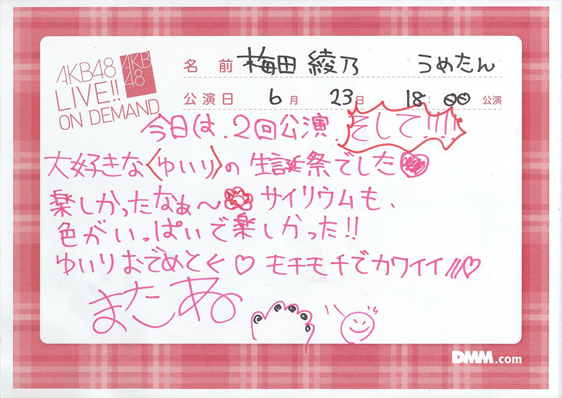 AKB48
LIVE!!
ON DEMAND
AKB
48
名 前 梅田 綾乃 うめたん
公演日 6月 23日 18:00 公演
今日は、2回公演 そして!!!!
大好きな〈ゆいり〉の生誕祭でした
楽しかったなぁ〜 サイリウムも、
色がいっぱいで楽しかった!!
ゆいりおでめとく♡ モチモチでカワイイ///♡
またあ
DMM.com